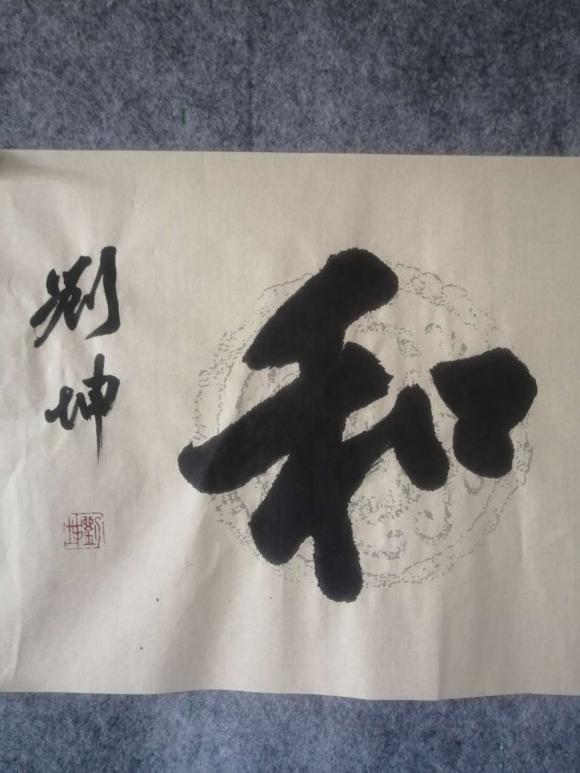 和
劉坤
劉坤